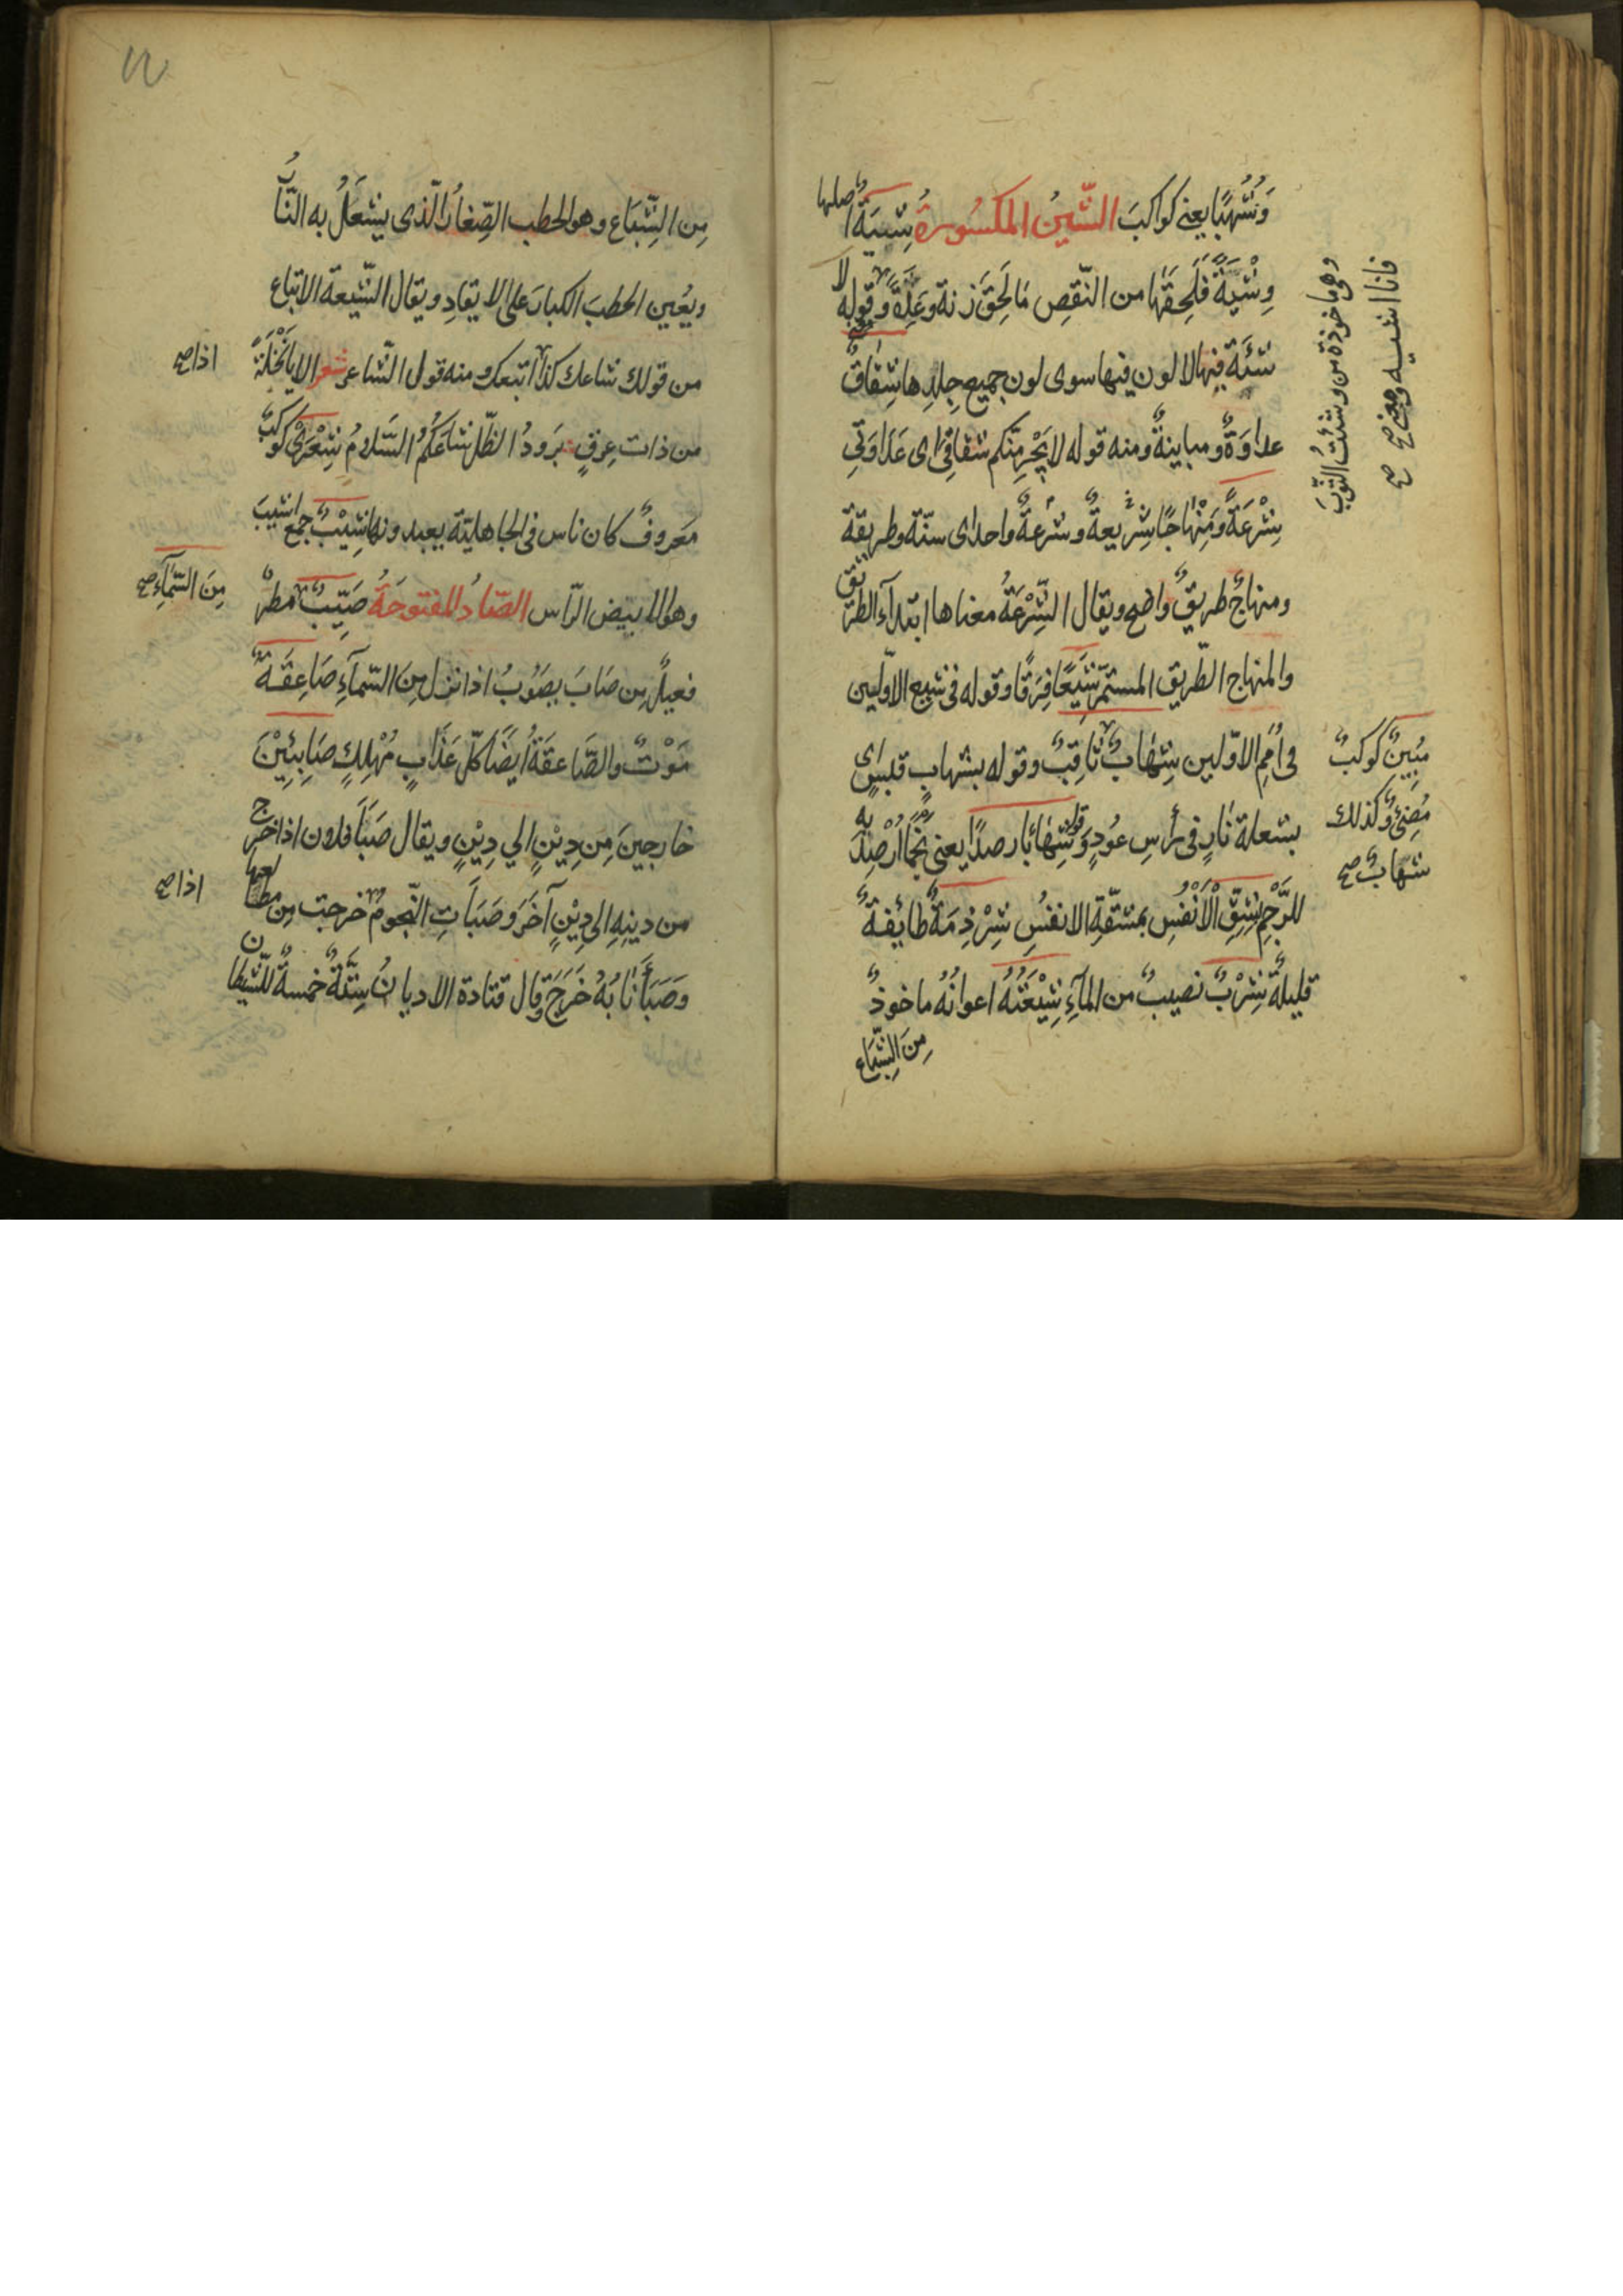 وَشُهُبًا يعني كواكبَ الشّينُ المكسُورة شِيَةٌ اصلها
وِشْيَةٌ فَلَحِقَهَا من النّقصِ مَا لَحِقَ زنة وعِدَةً وقوله لا
شِيَةَ فِيهَا لا لون فيها سوى لون جميع جِلدِها شِقاقٌ
عداوَةٌ ومباينةٌ ومنه قوله لا يَجْرِمَنَّكم شقاقي اى عَدَاوَتي
شِرْعَةً وَمِنْهَاجًا شَرِيعةٌ وشرعةٌ واحد اى سنّة وطريقة
ومنهاجٌ طريقٌ واضح ويقال الشِّرْعَةُ معناها ابتدآء الطريق
والمنهاج الطّريق المستمرّ شِيَعًا فِرَقًا وقوله في شيع الاوّلين
في اُمَمِ الاوّلين شِهَابٌ ثاقِبٌ وقوله بشهابٍ قبسٍ اى
بشعلة نارٍ في رأسِ عُودٍ وقوله شِهَابًا رصدًا يعني نجمًا اُرْصِدَ به
للرَّجْمِ بِشِقِّ الْأَنْفُسِ بمشقّةِ الانفسِ شِرْذِمَةٌ طائفةٌ
قليلةٌ شِرْبٌ نصيبٌ من المآءِ شِيْعَتُهُ اعوانُهُ ماخوذٌ
مِنَ الشِّيَاع
وهى ماخوذة من وشيتُ الثّوبَ
فانا اشيه صح
مُبِينٌ كوكبٌ
مُضِئٌ وكذلك
شهابٌ صح
مِن الشِّيَاع وهو الحطب الصِّغارُ الّذى يشعَلُ به النّارُ
ويُعين الحطبَ الكبارَ على الايقادِ ويقال الشّيعة الاتباع
من قولك شاعك كذا اتبعك ومنه قول الشّاعر شعر الا يا نَخْلَةً
من ذات عِرقٍ بَرودُ الظّل شاعَكُمُ السَّلامُ شِعْرَى كوكبٌ
مَعروفٌ كان ناس في الجاهليّة يعبدونها شِيْبٌ جمع اشيبَ
وهو الابيض الرّاس الصّادُ المفتوحَةُ صَيِّبٌ مطرٌ
فعيلٌ مِن صَابَ يصَوُبُ اذا نزل مِنَ السّمآءِ صَاعِقَةٌ
مَوْتٌ والصَّاعقةُ ايضًا كلّ عَذَابٍ مُهْلِكٍ صَابِئِيْنَ
خارجينَ مِن دِيْنٍ الي دِيْنٍ ويقال صَبَأَ فلان اذا خرج
من دينِهِ الى دِيْنٍ آخَرَ وصَبَأتِ النّجومُ خرجت مِن مطالعها
وَصَبَأَ نَابُهُ خَرَجَ وقال قتادة الاديانُ سِتَّةٌ خمسةٌ للشّيطان
اذا صح
مِنَ السّمآءِ صح
اذا صح